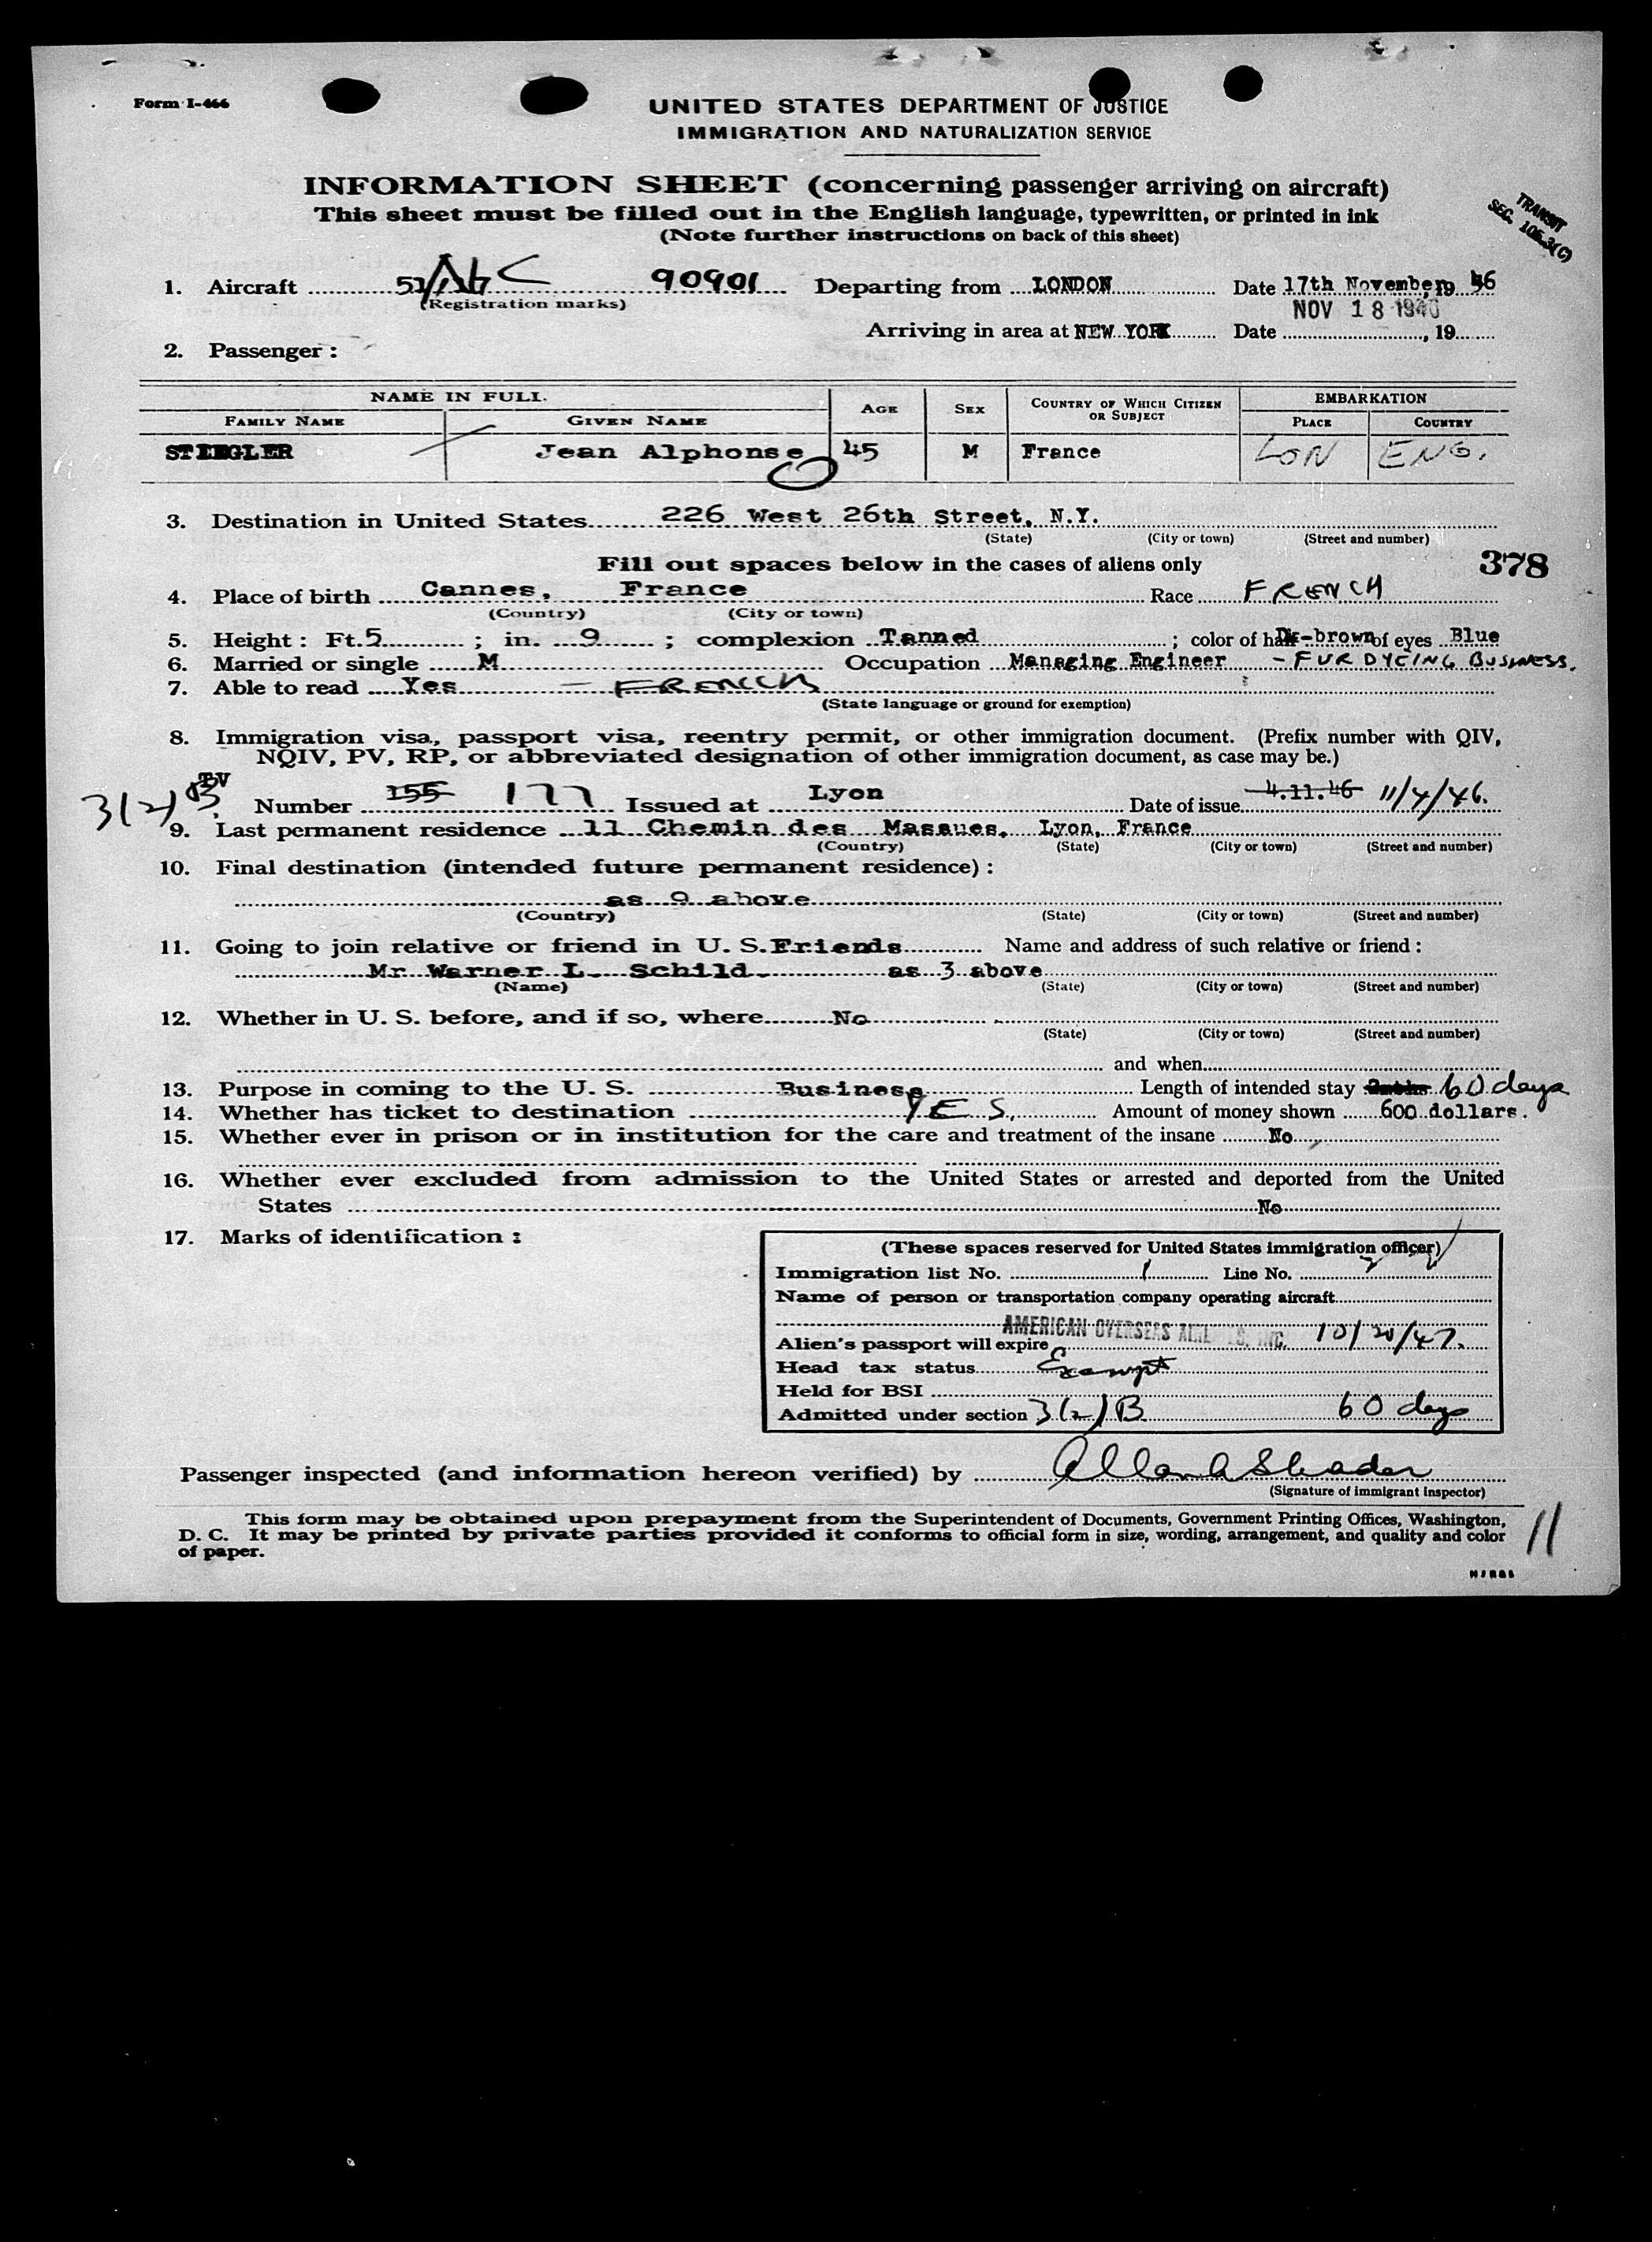 Form I-466
UNITED STATES DEPARTMENT OF JUSTICE
IMMIGRATION AND NATURALIZATION SERVICE
INFORMATION SHEET (concerning passenger arriving on aircraft)
This sheet must be filled out in the English language, typewritten, or printed in ink
(Note further instructions on back of this sheet)
TRANSIT
SEC. 105.3(C)
1. Aircraft 90901 Departing from LONDON Date 17th November, 19 46
(Registration marks)
NOV 18 1946
Arriving in area at NEW YORK Date , 19
2. Passenger :
NAME IN FULL
FAMILY NAME GIVEN NAME AGE SEX COUNTRY OF WHICH CITIZEN OR SUBJECT EMBARKATION
PLACE COUNTRY
STIEGLER Jean Alphonse 45 M France LON ENG.
3. Destination in United States 226 West 26th Street, N.Y.
(State) (City or town) (Street and number)
Fill out spaces below in the cases of aliens only 378
4. Place of birth Cannes, France Race FRENCH
(Country) (City or town)
5. Height : Ft. 5 ; in. 9 ; complexion Tanned ; color of hair Dk-brown of eyes Blue
6. Married or single M Occupation Managing Engineer - FUR DYEING BUSINESS.
7. Able to read Yes - FRENCH
(State language or ground for exemption)
8. Immigration visa, passport visa, reentry permit, or other immigration document. (Prefix number with QIV,
NQIV, PV, RP, or abbreviated designation of other immigration document, as case may be.)
3(2)B TV
Number 155 177 Issued at Lyon Date of issue 4.11.46 11/4/46.
9. Last permanent residence 11 Chemin des Massues, Lyon, France
(Country) (State) (City or town) (Street and number)
10. Final destination (intended future permanent residence) :
as 9 above
(Country) (State) (City or town) (Street and number)
11. Going to join relative or friend in U. S. Friends Name and address of such relative or friend :
Mr Warner L. Schild. as 3 above
(Name) (State) (City or town) (Street and number)
12. Whether in U. S. before, and if so, where No
(State) (City or town) (Street and number)
and when
13. Purpose in coming to the U. S. Business Length of intended stay 60 days
14. Whether has ticket to destination YES. Amount of money shown 600 dollars.
15. Whether ever in prison or in institution for the care and treatment of the insane No
16. Whether ever excluded from admission to the United States or arrested and deported from the United
States No
17. Marks of identification :
(These spaces reserved for United States immigration officer)
Immigration list No. 1 Line No. 2
Name of person or transportation company operating aircraft
AMERICAN OVERSEAS AIRLINES, INC.
Alien's passport will expire 10/20/47.
Head tax status Exempt
Held for BSI
Admitted under section 3(2)B 60 days
Passenger inspected (and information hereon verified) by Allan A Shader
(Signature of immigrant inspector)
This form may be obtained upon prepayment from the Superintendent of Documents, Government Printing Offices, Washington,
D. C. It may be printed by private parties provided it conforms to official form in size, wording, arrangement, and quality and color
of paper.
11